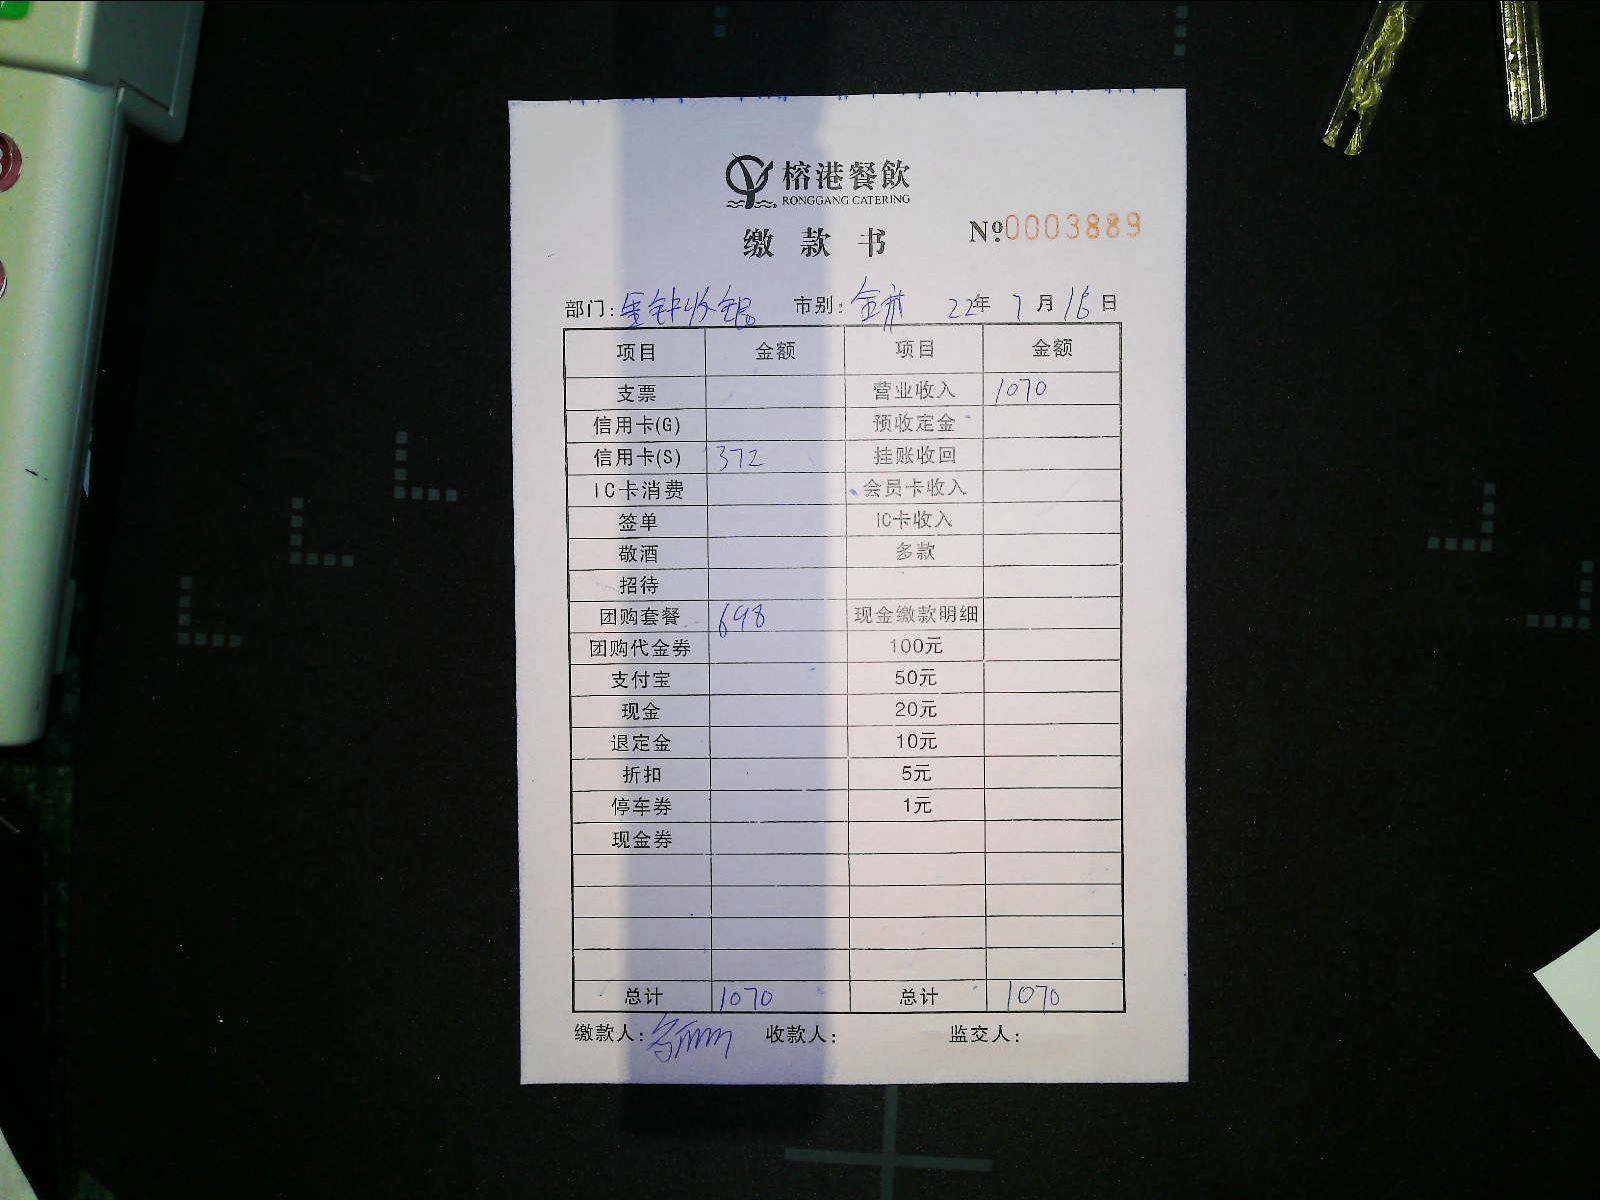 榕港餐飲
RONGGANG CATERING
缴款书 Nº.0003889
部门: 收银 市别: 22年 7月 日
项目 金额 项目 金额
支票 营业收入 1070
信用卡(G) 预收定金
信用卡(S) 372 挂账收回
IC卡消费 会员卡收入
签单 IC卡收入
敬酒 多款
招待
团购套餐 698 现金缴款明细
团购代金券 100元
支付宝 50元
现金 20元
退定金 10元
折扣 5元
停车券 1元
现金券
总计 1070 总计 1070
缴款人: 收款人: 监交人: